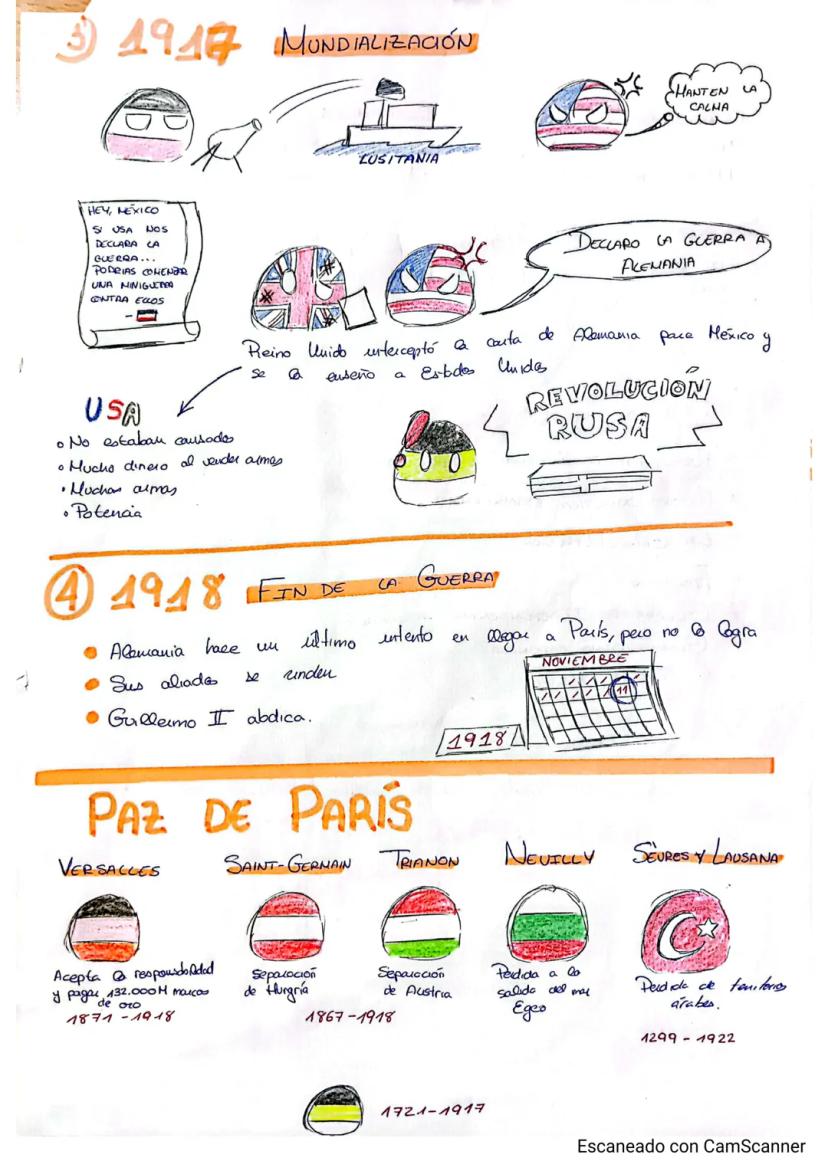 3) 1917 MUNDIALIZACIÓN
MANTEN LA
CALMA
LUSITANIA
HEY, MÉXICO
SI USA NOS
DECLARA LA
GUERRA...
PODRIAS COMENZAR
UNA MINIGUERRA
CONTRA ELLOS
-
DECLARO LA GUERRA A
ALEMANIA
Reino Unido interceptó la carta de Alemania para México y
se la enseño a Estados Unidos
USA
• No estaban cansados
• Mucho dinero al vender armas
• Muchas armas
• Potencia
REVOLUCIÓN
RUSA
4 1918 FIN DE LA GUERRA
• Alemania hace un último intento en llegar a París, pero no lo logra
• Sus aliados se rinden
• Guillermo II abdica.
NOVIEMBRE
11
1918
PAZ DE PARÍS
VERSALLES
Acepta la responsabilidad
y pagar 132.000M marcos
de oro
1871 - 1918
SAINT-GERMAIN
Separación
de Hungría
TRIANON
Separación
de Austria
1867-1918
NEUILLY
Pérdida a la
salida del mar
Egeo
SÈVRES Y LAUSANA
Perdida de territorios
árabes.
1299 - 1922
1721-1917
Escaneado con CamScanner